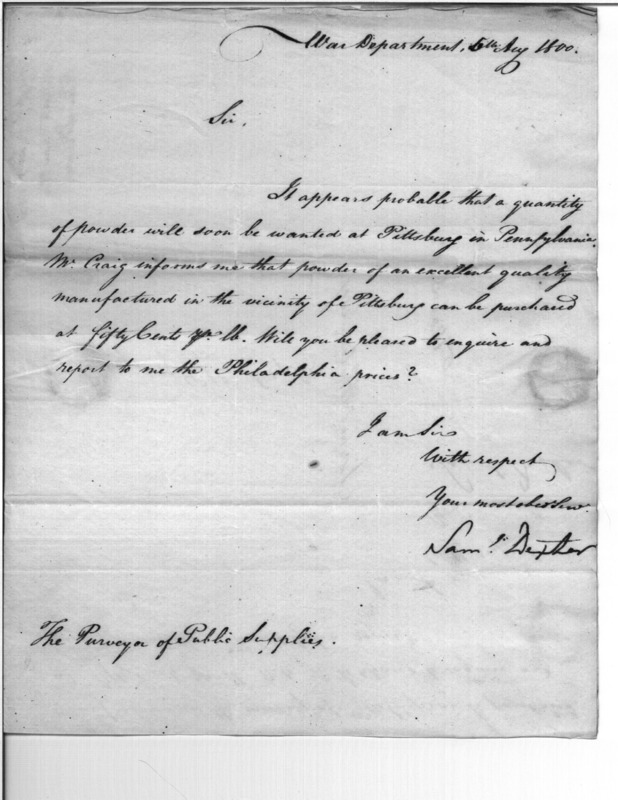 War Department, 5th Aug 1800.
Sir,
It appears probable that a quantity
of powder will soon be wanted at Pittsburg in Pennsylvania.
Mr. Craig informs me that powder of an excellent quality
manufactured in the vicinity of Pittsburg can be purchased
at fifty Cents pr. lb. Will you be pleased to enquire and
report to me the Philadelphia prices?
I am Sir
With respect
Your most obed Serv.
Saml. Dexter
The Purveyor of Public Supplies.